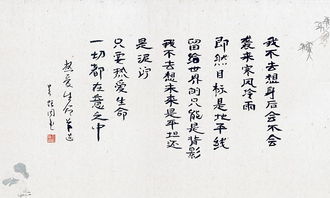 我不去想身后会不会
袭来寒风冷雨
即然目标是地平线
留给世界的只能是背影
我不去想未来是平坦还
是泥泞
只要热爱生命
一切都在意之中
热爱生命节选